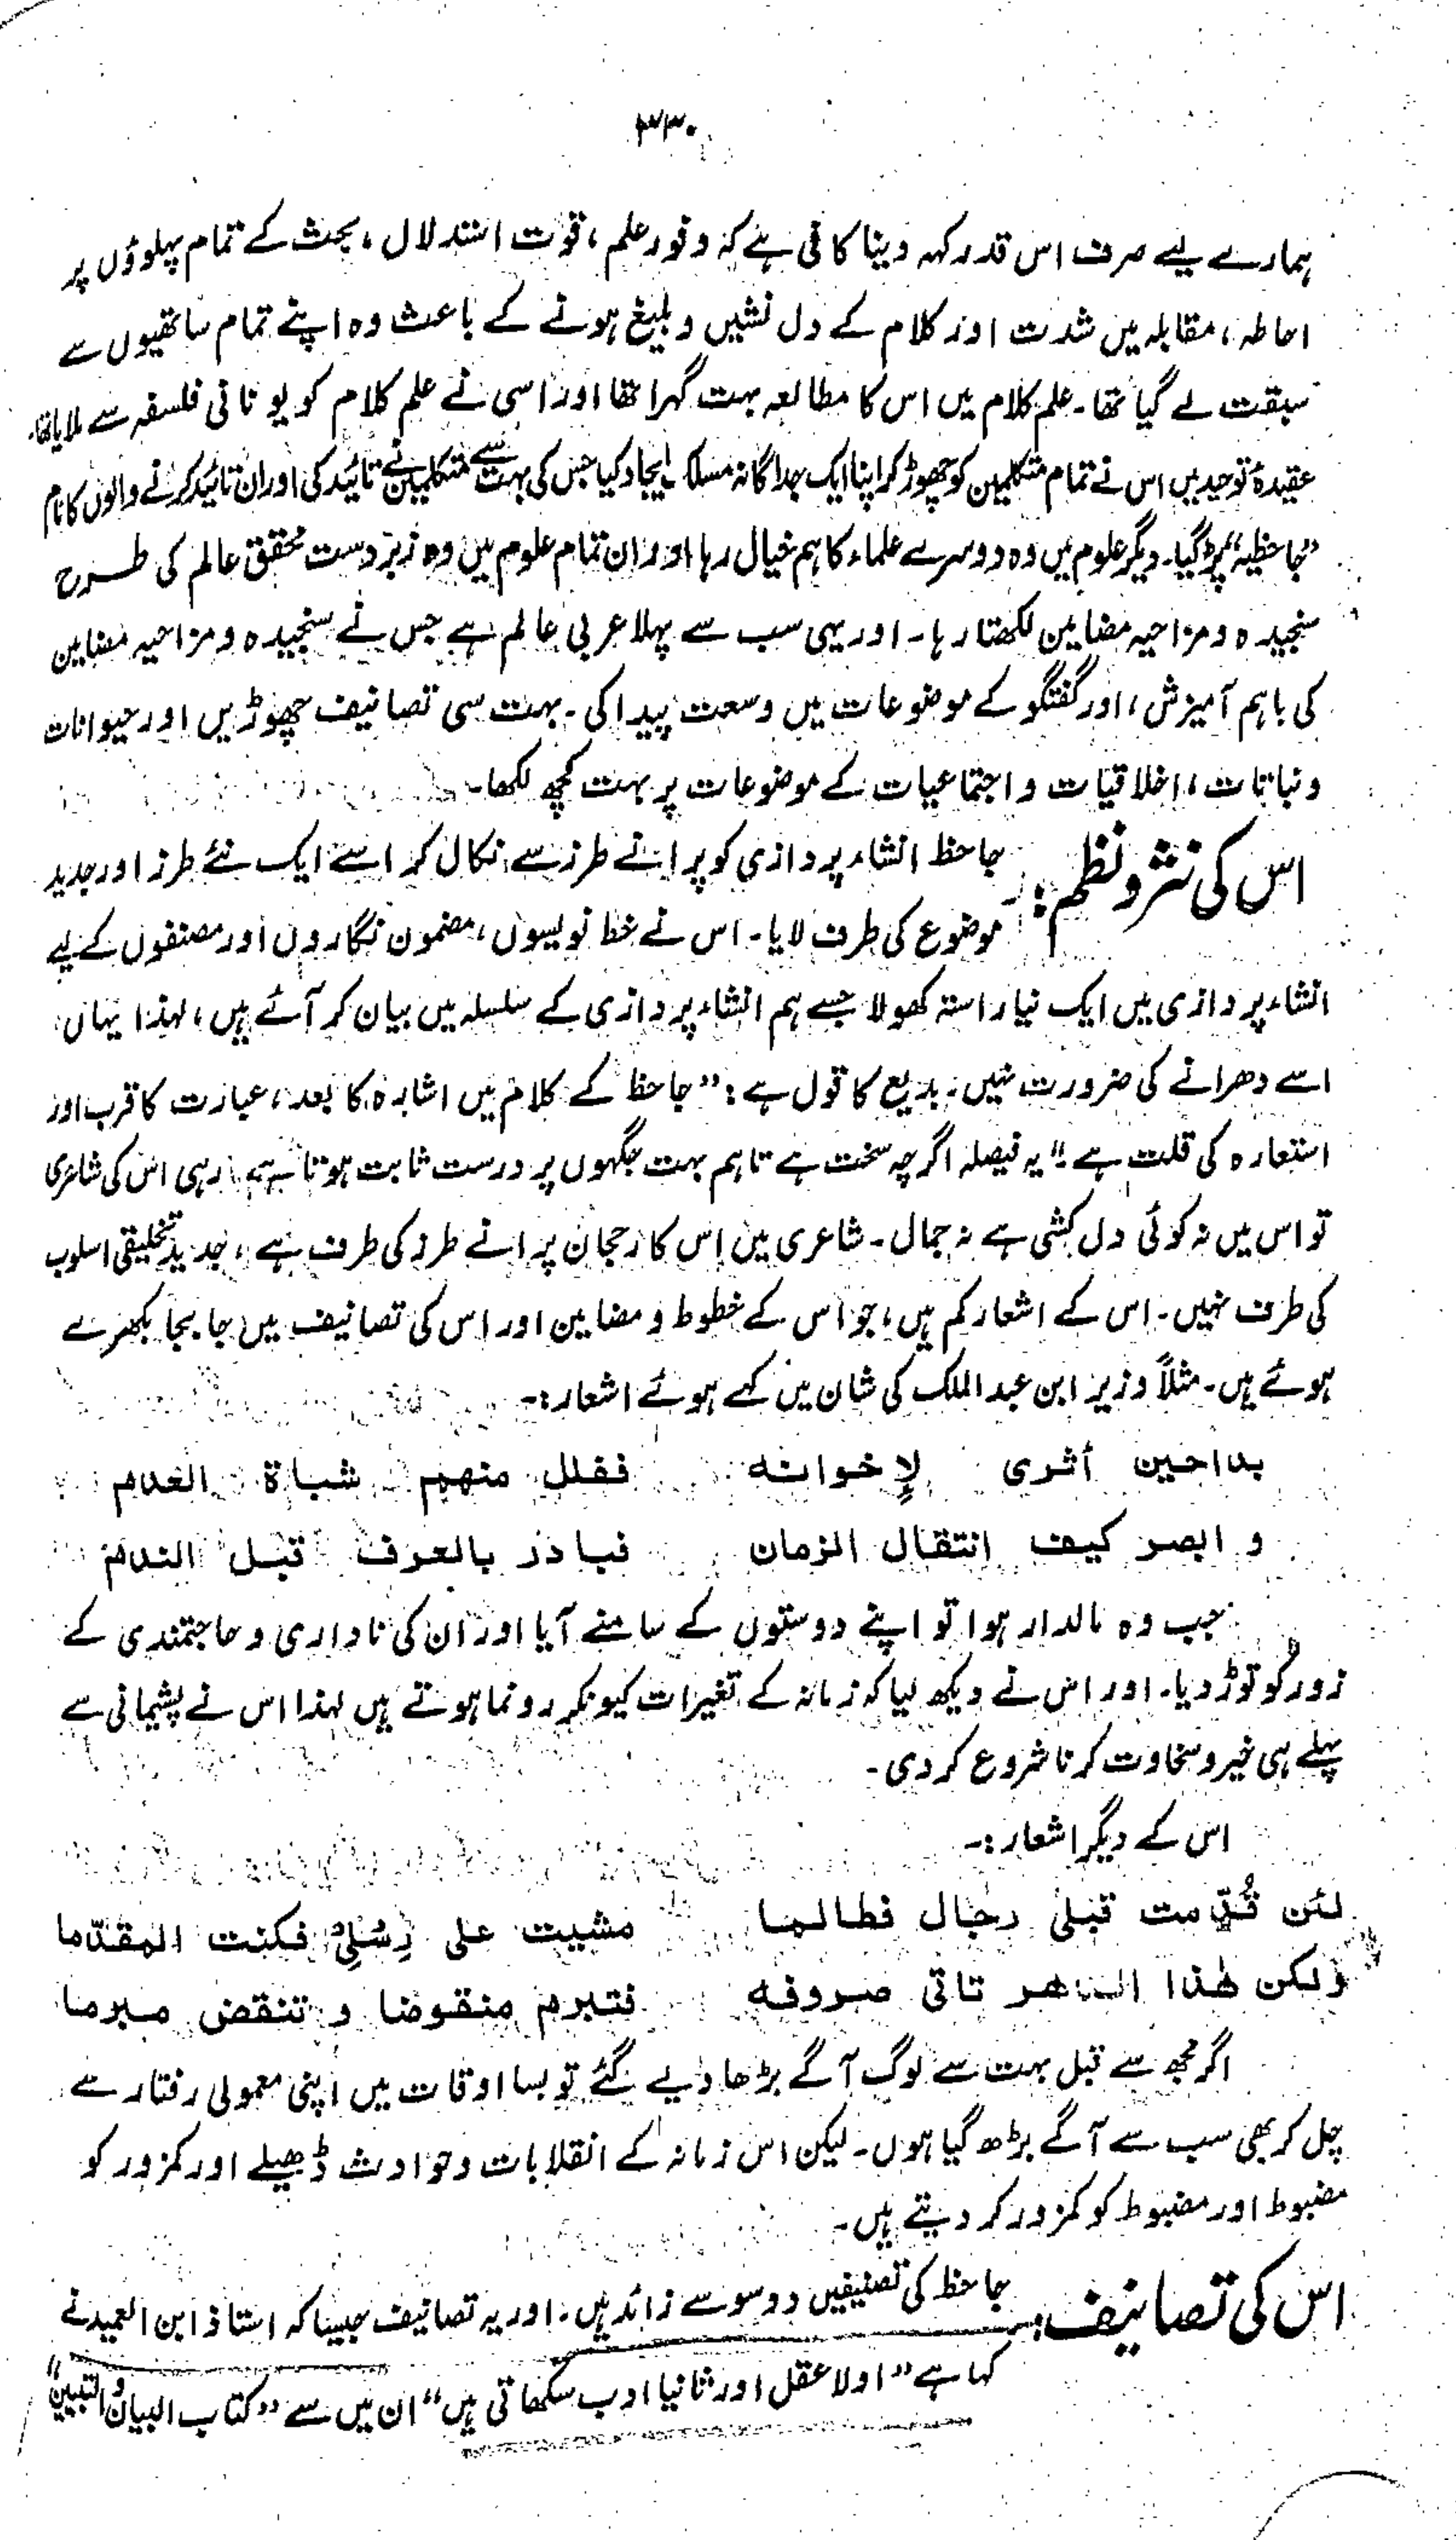 ۳۳۰
ہمارے لیے صرف اس قدر کہہ دینا کافی ہے کہ وفور علم، قوت استدلال، بحث کے تمام پہلوؤں پر
احاطہ، مقابلہ میں شدت اور کلام کے دل نشیں و بلیغ ہونے کے باعث وہ اپنے تمام ساتھیوں سے
سبقت لے گیا تھا۔ علم کلام میں اس کا مطالعہ بہت گہرا تھا اور اسی نے علم کلام کو یونانی فلسفہ سے ملایا تھا۔
عقیدۂ توحید میں اس نے تمام متکلمین کو چھوڑ کر اپنا ایک جداگانہ مسلک ایجاد کیا جس کی بہت سے متکلمین نے تائید کی اور ان تائید کرنے والوں کا نام
”جاحظیہ“ پڑ گیا۔ دیگر علوم میں وہ دوسرے علماء کا ہم خیال رہا اور ان تمام علوم میں وہ زبردست محقق عالم کی طرح
سنجیدہ و مزاحیہ مضامین لکھتا رہا۔ اور یہی سب سے پہلا عربی عالم ہے جس نے سنجیدہ و مزاحیہ مضامین
کی باہم آمیزش، اور گفتگو کے موضوعات میں وسعت پیدا کی۔ بہت سی تصانیف چھوڑیں اور حیوانات
و نباتات، اخلاقیات و اجتماعیات کے موضوعات پر بہت کچھ لکھا۔
اس کی نثر و نظم:۔ جاحظ انشاء پردازی کو پرانے طرز سے نکال کر اسے ایک نئے طرز اور جدید
موضوع کی طرف لایا۔ اس نے خط نویسوں، مضمون نگاروں اور مصنفوں کے لیے
انشاء پردازی میں ایک نیا راستہ کھولا جسے ہم انشاء پردازی کے سلسلہ میں بیان کر آئے ہیں، لہذا یہاں
اسے دھرانے کی ضرورت نہیں۔ بدیع کا قول ہے: ”جاحظ کے کلام میں اشارہ کا بعد، عبارت کا قرب اور
استعارہ کی قلت ہے“ یہ فیصلہ اگرچہ سخت ہے تاہم بہت جگہوں پر درست ثابت ہوتا ہے۔ رہی اس کی شاعری
تو اس میں نہ کوئی دل کشی ہے نہ جمال۔ شاعری میں اس کا رجحان پرانے طرز کی طرف ہے، جدید تخلیقی اسلوب
کی طرف نہیں۔ اس کے اشعار کم ہیں، جو اس کے خطوط و مضامین اور اس کی تصانیف میں جا بجا بکھرے
ہوئے ہیں۔ مثلاً وزیر ابن عبد الملک کی شان میں کہے ہوئے اشعار:۔
بدا حین أثری لإخوانه ففلل منهم شباة العدم
و ابصر کیف إنتقال الزمان فبادر بالعرف قبل الندم
جب وہ مالدار ہوا تو اپنے دوستوں کے سامنے آیا اور ان کی ناداری و حاجتمندی کے
زور کو توڑ دیا۔ اور اس نے دیکھ لیا کہ زمانہ کے تغیرات کیونکر رونما ہوتے ہیں لہذا اس نے پشیمانی سے
پہلے ہی خیر و سخاوت کرنا شروع کر دی۔
اس کے دیگر اشعار:۔
لئن قُدِّمت قبلی رجال فطالما مشیت علی رِسْلِیْ فکنت المقدّما
ولکن لهذا الدهر تاتی صروفه فتبرم منقوضا و تنقض مبرما
اگر مجھ سے قبل بہت سے لوگ آگے بڑھا دیے گئے تو بسا اوقات میں اپنی معمولی رفتار سے
چل کر بھی سب سے آگے بڑھ گیا ہوں۔ لیکن اس زمانہ کے انقلابات و حوادث ڈھیلے اور کمزور کو
مضبوط اور مضبوط کو کمزور کر دیتے ہیں۔
اس کی تصانیف:۔ جاحظ کی تصنیفیں دو سو سے زائد ہیں۔ اور یہ تصانیف جیسا کہ استاذ ابن العمید نے
کہا ہے ”اولا عقل اور ثانیا ادب سکھاتی ہیں“ ان میں سے ”کتاب البیان و التبیین“